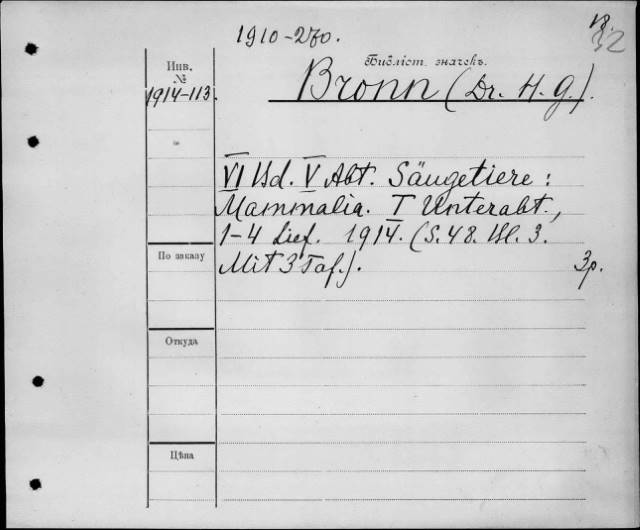 1910-270.
32
Библіот. значекъ.
Инв.
№
1914-113.
Bronn (Dr. H. G.).
VI Bd. V Abt. Säugetiere:
Mammalia. I Unterabt.,
1-4 Lief. 1914. (S. 48. Bl. 3.
Mit 3 Taf.).
3р.
По заказу
Откуда
Цѣна